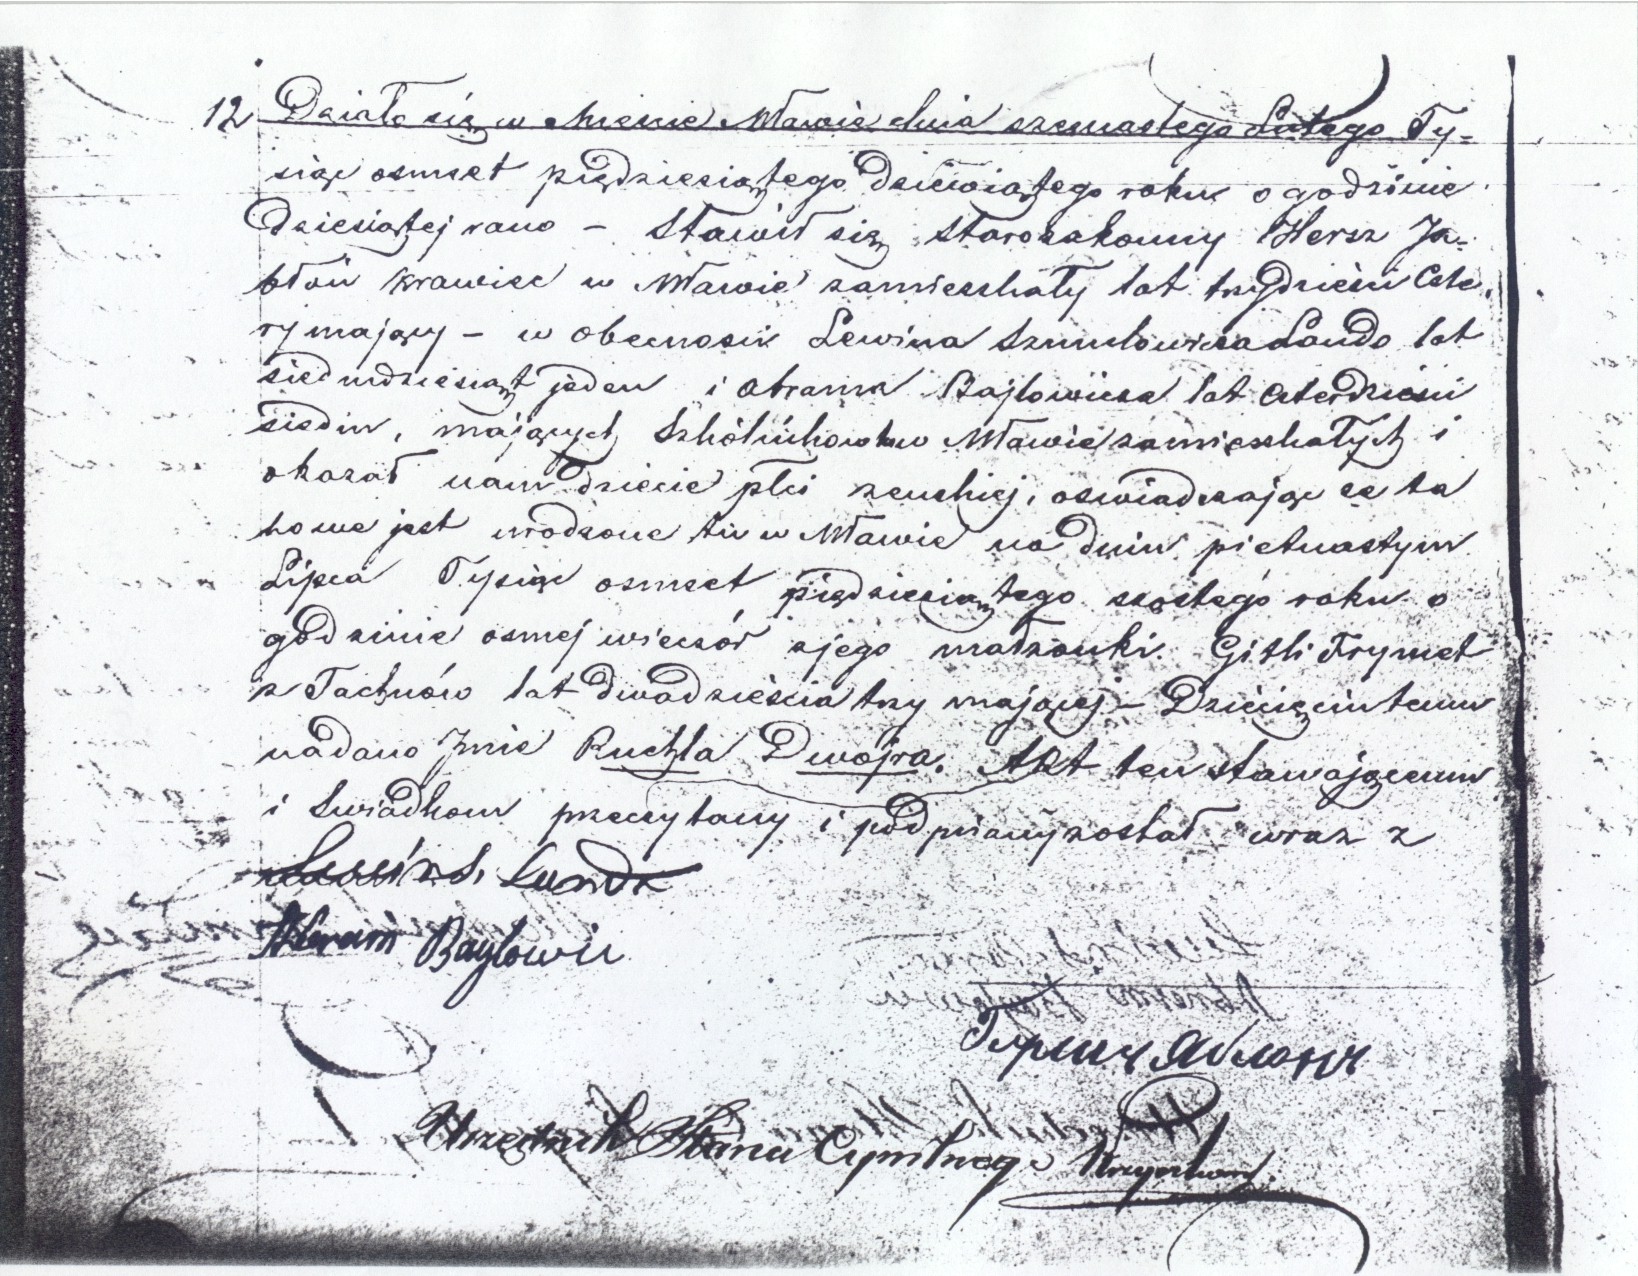 12 Działo się w Mieście Mławie dnia szesnastego Lutego Ty=
siąc osmset piędziesiątego dziewiątego roku o godzinie
Dziesiątej rano – Stawił się Starozakonny Hersz Ja=
błoń krawiec w Mławie zamieszkały lat trzydzieści Czte
ry mający – w obecnosci Lewina Szmulowicza Lando lat
siedmdziesiąt jeden i Abrama Bajlowicza lat czterdzieści
siedm, mających Szkólnikow w Mławie zamieszkałych i
okazał nam dziecie płci zenskiej, oswiadczając ze ta
kowe jest urodzone tu w Mławie na dniu pietnastym
Lipca Tysiąc osmset pięдziesiątego szóstego roku o
godzinie osmej wieczór z jego małzonki Gitli Frymet
z Tachnów lat dwadzieścia trzy mającej – Dziecięciu temu
nadano Imie Ruchla Dwojra. Akt ten stawającemu
i Swiadkom przeczytany i podpisany został wraz z
Lewin S. Landa
Abram Baylowic
Urzędnik Stanu Cywilnego